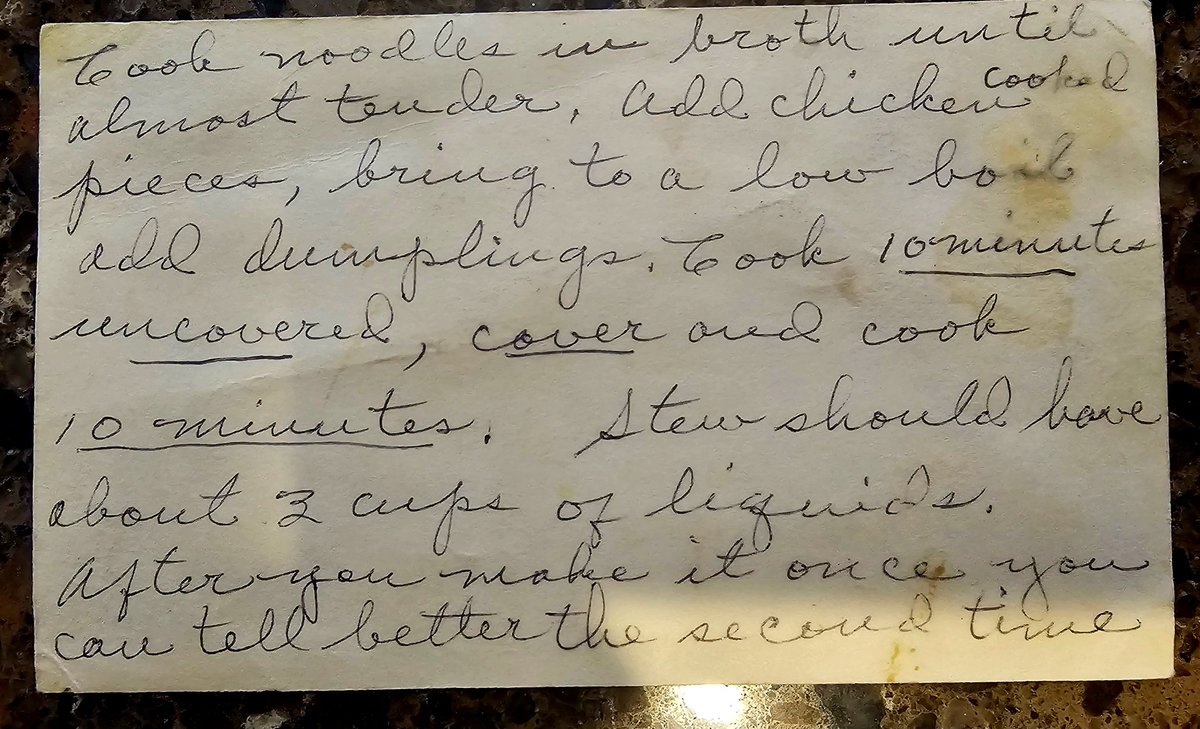 Cook noodles in broth until
almost tender. Add chicken cooked
pieces, bring to a low boil
add dumplings. Cook 10 minutes
uncovered, cover and cook
10 minutes. Stew should have
about 3 cups of liquids.
After you make it once you
can tell better the second time